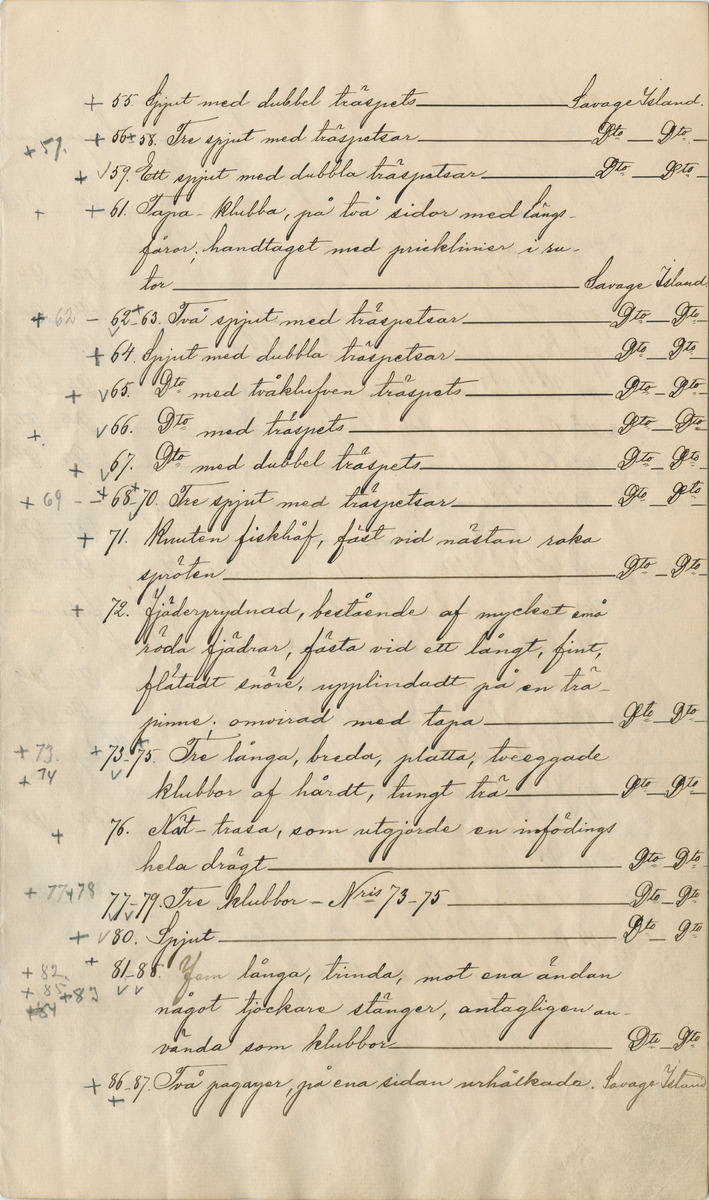 + 55. Spjut med dubbel träspets Savage Island.
+ 57. + 56+58. Tre spjut med träspetsar Dto Dto
+ √59. Ett spjut med dubbla träspetsar Dto Dto
+ + 61. Tapa-klubba, på två sidor med längs-
fåror; handtaget med pricklinier i ru-
tor Savage Island.
+ 62 - 62-63. Två spjut med träspetsar Dto Dto
+ 64. Spjut med dubbla träspetsar Dto Dto
+ √65. Dto med tvåklufven träspets Dto Dto
+. √66. Dto med träspets Dto Dto
+ √67. Dto med dubbel träspets Dto Dto
+ 69 - + 68-70. Tre spjut med träspetsar Dto Dto
+ 71. Knuten fiskhåf, fäst vid nästan raka
spröten Dto Dto
+ 72. Fjäderprydnad, bestående af mycket små
röda fjädrar, fästa vid ett långt, fint,
flätadt snöre, upplindadt på en trä-
pinne; omvirad med tapa Dto Dto
+ 73. + 73-75. Tre långa, breda, platta, tveeggade
+ 74 klubbor af hårdt, tungt trä Dto Dto
+ 76. Nät-trasa, som utgjorde en infödings
hela drägt Dto Dto
+ 77+78 77-79. Tre klubbor - Nris 73-75 Dto Dto
+ √80. Spjut Dto Dto
+ 82. + 81-85. Fem långa, trinda, mot ena ändan
+ 85. +83 något tjockare stänger, antagligen an-
+84 vända som klubbor Dto Dto
+ 86-87. Två pagayer, på ena sidan urhålkade. Savage Island